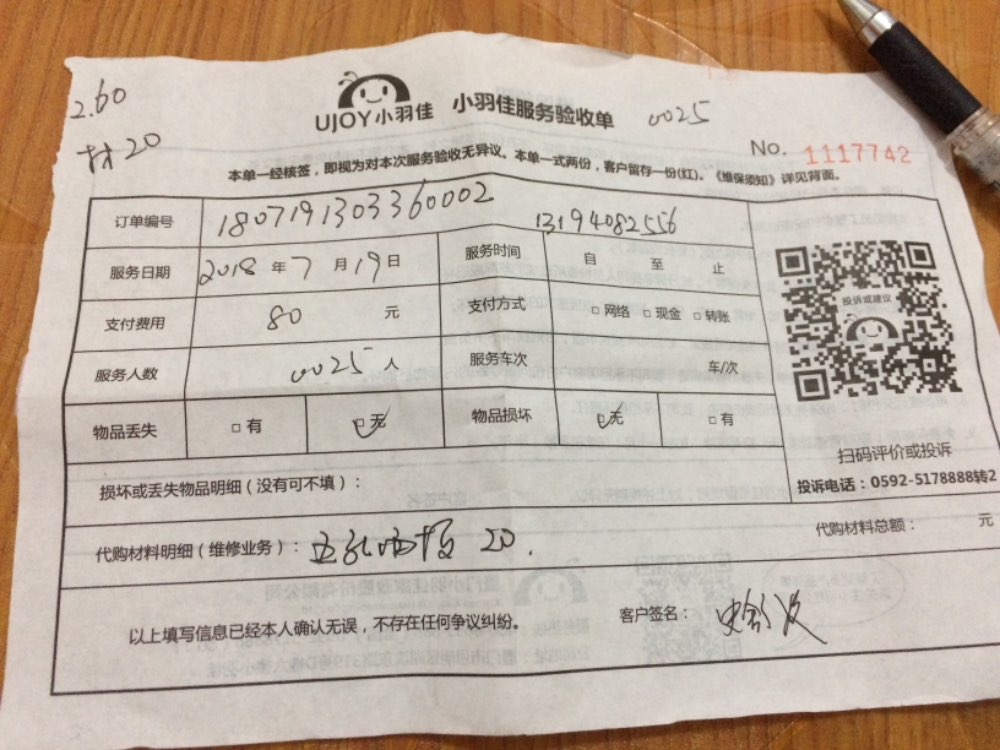 2.60
材20
UJOY小羽佳 小羽佳服务验收单 0025
No. 1117742
本单一经核签，即视为对本次服务验收无异议。本单一式两份，客户留存一份(红)。《维保须知》详见背面。
订单编号 180719130336 0002 13194082556
服务日期 2018 年 7 月 19 日 服务时间 自 至 止
支付费用 80 元 支付方式 □ 网络 □ 现金 □ 转账
服务人数 0025 人 服务车次 车/次
物品丢失 □ 有 □ 无 物品损坏 □ 无 □ 有
投诉或建议
扫码评价或投诉
投诉电话：0592-5178888转2
损坏或丢失物品明细（没有可不填）：
代购材料明细（维修业务）：五孔面板 20. 代购材料总额： 元
以上填写信息已经本人确认无误，不存在任何争议纠纷。 客户签名：